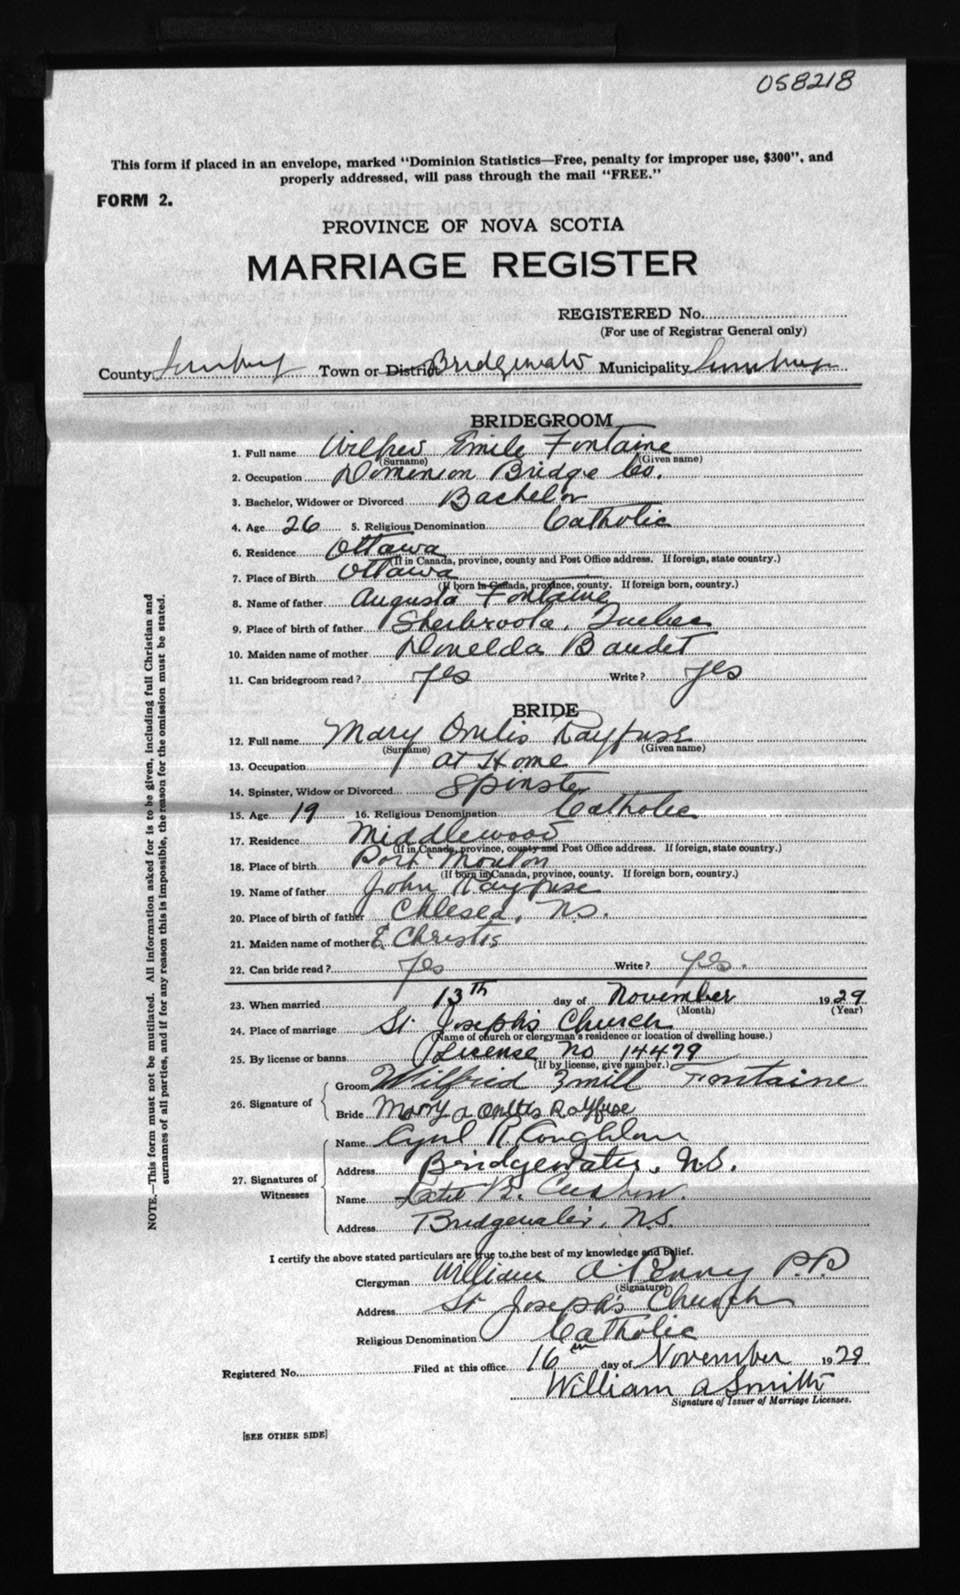 058218
This form if placed in an envelope, marked "Dominion Statistics—Free, penalty for improper use, $300", and
properly addressed, will pass through the mail "FREE."
FORM 2.
PROVINCE OF NOVA SCOTIA
MARRIAGE REGISTER
REGISTERED No.
(For use of Registrar General only)
County Lunenburg Town or District Bridgewater Municipality Lunenburg
BRIDEGROOM
1. Full name Wilfred Emile Fontaine
(Surname) (Given name)
2. Occupation Dominion Bridge Co.
3. Bachelor, Widower or Divorced Bachelor
4. Age 26 5. Religious Denomination Catholic
6. Residence Ottawa
(If in Canada, province, county and Post Office address. If foreign, state country.)
7. Place of Birth Ottawa
(If born in Canada, province, county. If foreign born, country.)
8. Name of father Augusta Fontaine
9. Place of birth of father Sherbrooke, Quebec
10. Maiden name of mother Donelda Baudet
11. Can bridegroom read? Yes Write? Yes
BRIDE
12. Full name Mary Rayfuse
(Surname) (Given name)
13. Occupation At Home
14. Spinster, Widow or Divorced Spinster
15. Age 19 16. Religious Denomination Catholic
17. Residence Middlewood
(If in Canada, province, county and Post Office address. If foreign, state country.)
18. Place of birth Port Mouton
(If born in Canada, province, county. If foreign born, country.)
19. Name of father John Rayfuse
20. Place of birth of father Chlesea, N.S.
21. Maiden name of mother E. Christis
22. Can bride read? Yes Write? Yes.
23. When married 13th day of November 1929
(Month) (Year)
24. Place of marriage St. Joseph's Church
(Name of church or clergyman's residence or location of dwelling house.)
25. By license or banns License No 14479
(If by license, give number.)
26. Signature of
Groom Wilfrid Emill Fontaine
Bride Mary Rayfuse
27. Signatures of Witnesses
Name Cyril R. Coughlan
Address Bridgewater, N.S.
Name B.
Address Bridgewater, N.S.
I certify the above stated particulars are true to the best of my knowledge and belief.
Clergyman William A Penny P.P.
(Signature)
Address St Joseph's Church
Religious Denomination Catholic
Registered No. Filed at this office 16th day of November 1929
William A Smith
Signature of Issuer of Marriage Licenses.
[SEE OTHER SIDE]
NOTE.—This form must not be mutilated. All information asked for is to be given, including full Christian and
surnames of all parties, and if for any reason this is impossible, the reason for the omission must be stated.